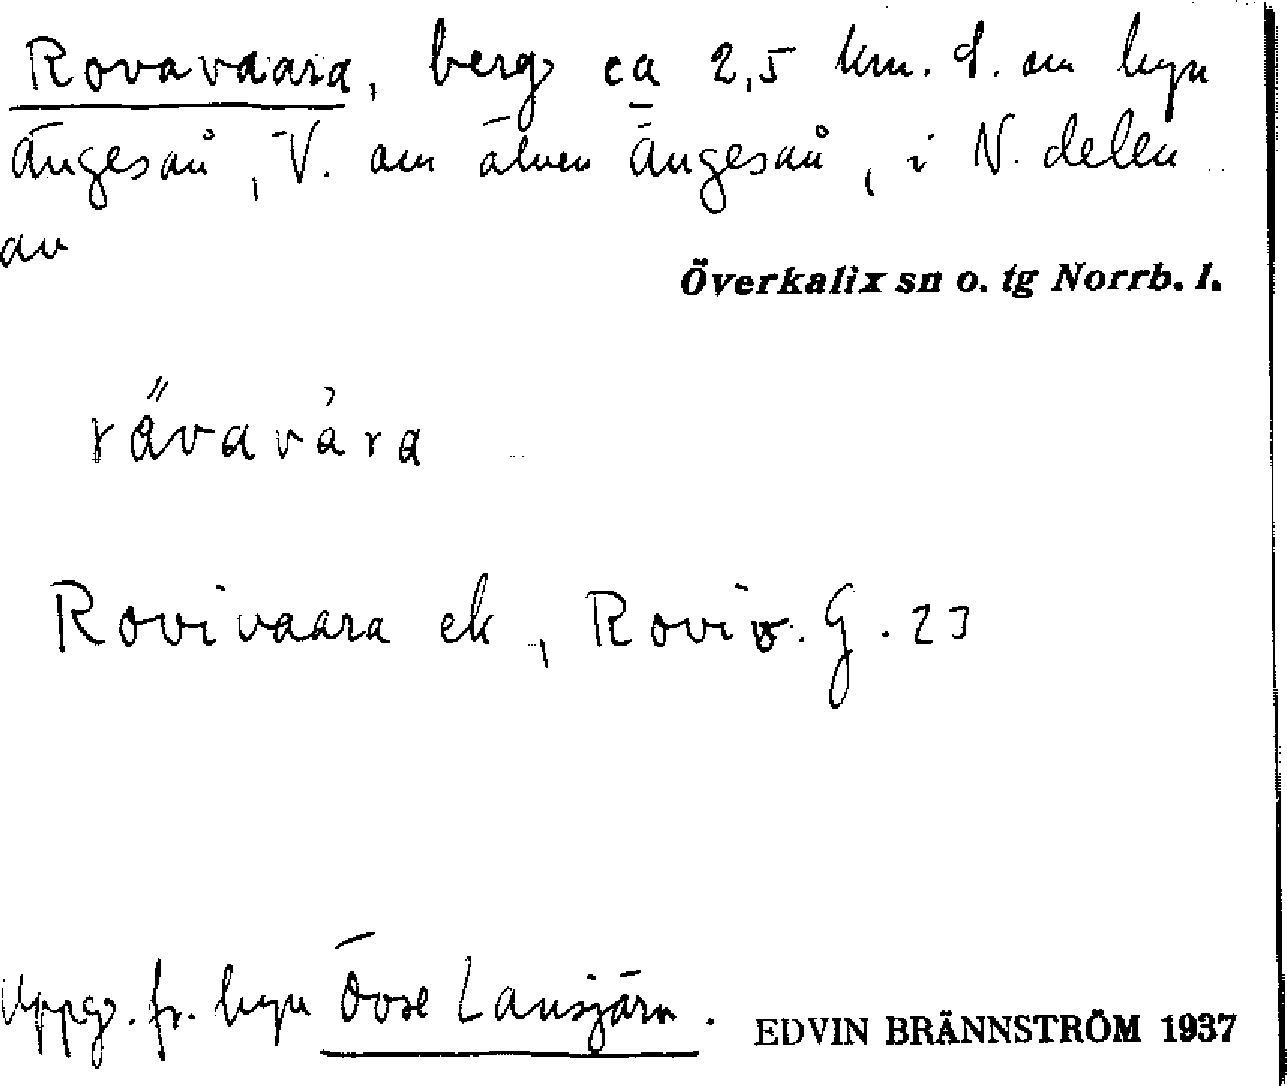 Rovavaara, berg ca 2,5 km. S. om byn
Ängesån, V. om älven Ängesån, i N. delen
av
Överkalix sn o. tg Norrb. l.
råvavàra
Rovivaara ek, Roviv. G. 23
Uppg. fr. byn Övre Lansjärv.
EDVIN BRÄNNSTRÖM 1937